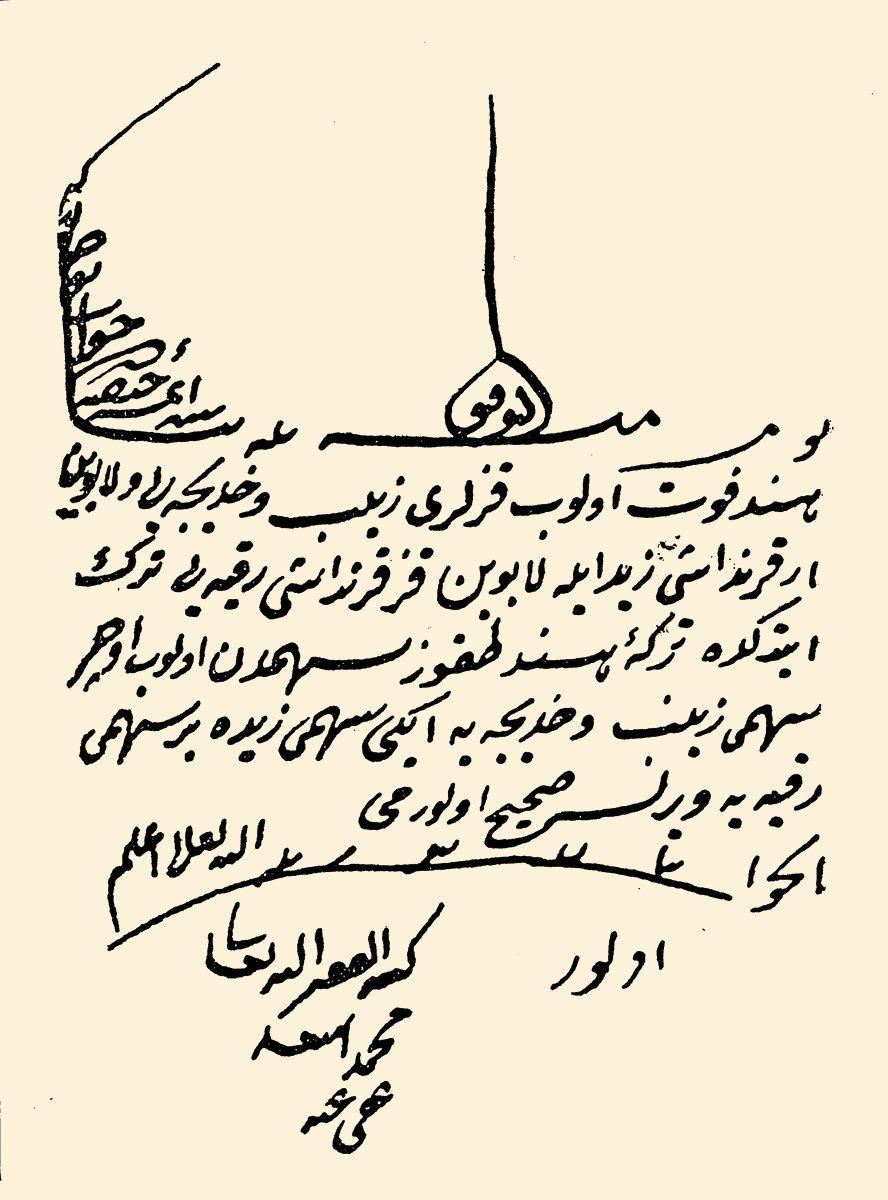 التوفيق
بو مسئله
هند فوت اولوب قزلری زینب و خدیجه یی و لابوین
ار قرنداشی زید ایله لابوین قز قرنداشی رقیه یی ترك
ایتدكده تركهٔ هند طقوز سهمدن اولوب اوچر
سهمی زینب و خدیجه یه ایكی سهمی زیده بر سهمی
رقیه یه ویرلسه صحیح اولورمی
الجواب الله تعالی اعلم
اولور
كتبه الفقیر الیه تعالی
محمد اسعد
عفی عنه